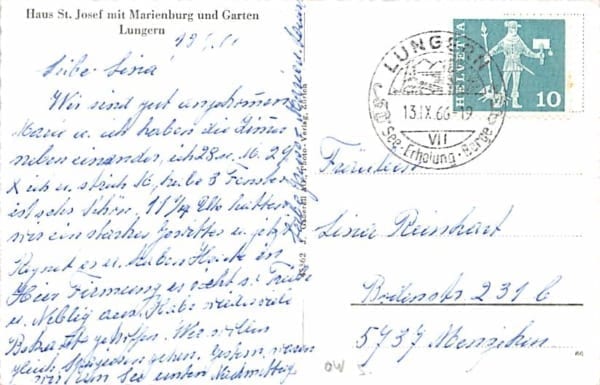 Haus St. Josef mit Marienburg und Garten
Lungern
Liebe Lina
Wir sind gut angekommen
Marie u. ich haben die Zimer
neben einander, ich 28 u. M. 29
ich u. M. habe 3 Fenster
ist sehr schön. 11 1/4 Uhr hatten
wir ein starkes Gewitter u. jetzt
Regnet es u. haben Heute in
Hier Firmung es sicht s. Trübe
u. Neblig aus. Habe viele
Bekannte getroffen. Wir wollen
gleich Spazieren gehen. Gestern waren
wir am See unten Nachmittag
HELVETIA
10
LUNGERN
13.IX.66-19
VII
See-Erholung-Berge
Fräulein
Lina Reinhart
Bodenstr 231 b
5737 Menziken
OW